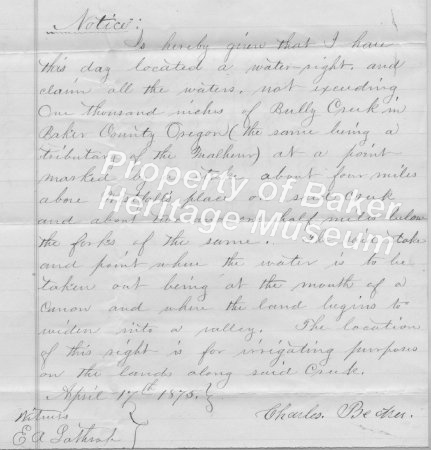 Notice:
Is hereby given that I have
this day located a water-right. and
claim all the waters, not exceeding
One thousand inches of Bully Creek in
Baker County Oregon (the same being a
tributary of the Malheur) at a point
marked by a stake about four miles
above place on said Creek
and about one half miles below
the forks of the same. The said stake
and point where the water is to be
taken out being at the mouth of a
Canon and where the land begins to
widen into a valley. The location
of this right is for irrigating purposes
on the lands along said Creek.
April 17th 1875.
Charles. Becker.
Witness
E A Lathrop
Property of Baker
Heritage Museum